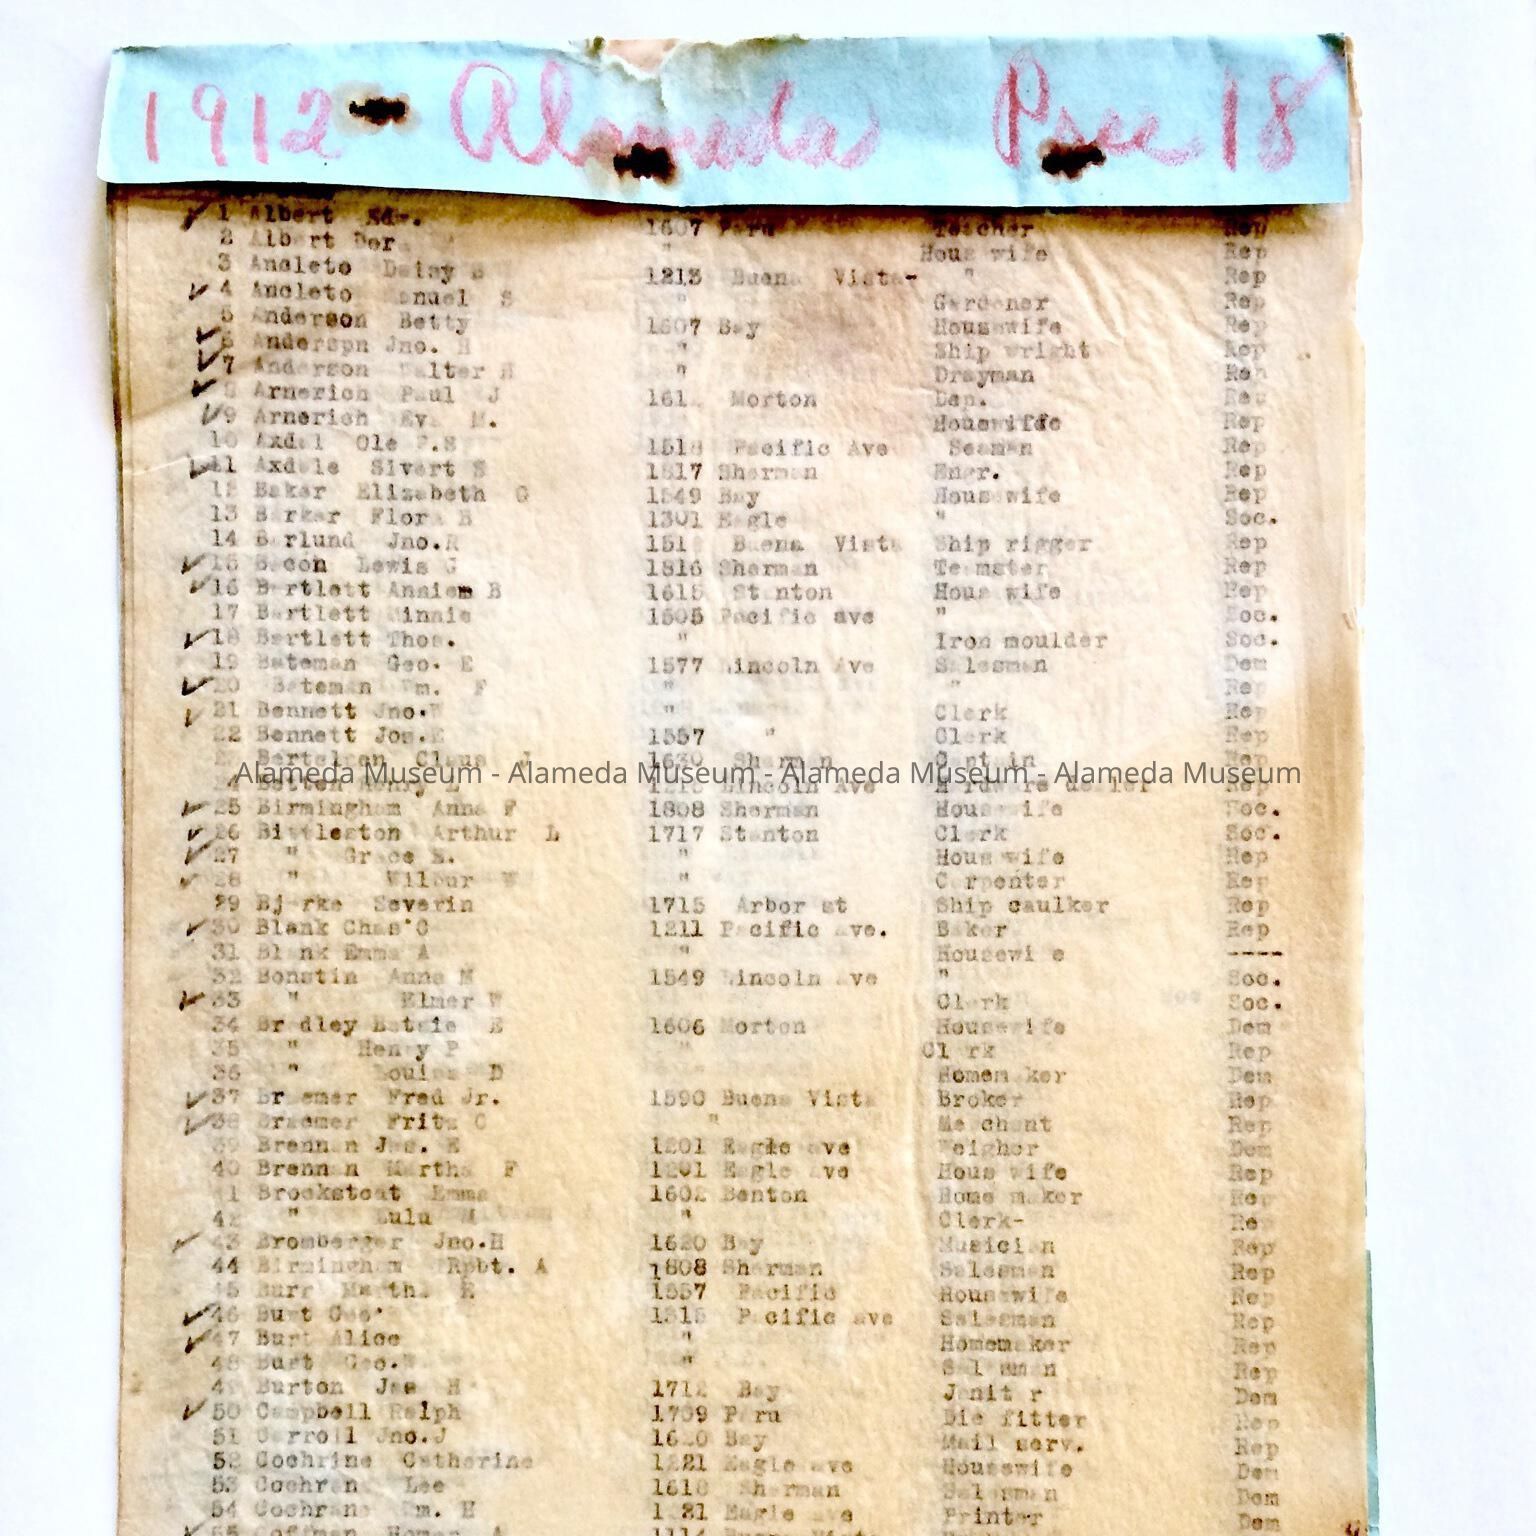 1912 - Alameda Prec 18
1 Albert Edw. 1607 Peru Teacher Rep
2 Albert Dor " Housewife Rep
3 Ancleto Daisy S 1213 Buena Vista- " Rep
4 Ancleto Manuel S " Gardener Rep
5 Anderson Betty 1607 Bay Housewife Rep
6 Anderspn Jno. H " Ship wright Rep
7 Anderson Walter H " Drayman Rep
8 Arnerich Paul J Morton Dep. Rep
9 Arnerich Eva M. Housewifde Rep
10 Axdal Ole P.S 1518 Pacific Ave Seaman Rep
11 Axdale Sivert S 1817 Sherman Engr. Rep
12 Baker Elizabeth G 1549 Bay Housewife Rep
13 Barker Flora B 1301 Eagle " Soc.
14 Barlund Jno.R Buena Vista Ship rigger Rep
15 Bacon Lewis G 1816 Sherman Teamster Rep
16 Bartlett B 1615 Stanton Housewife Rep
17 Bartlett Minnie 1505 Pacific ave " Soc.
18 Bartlett Thos. " Iron moulder Soc.
19 Bateman Geo. E 1577 Lincoln Ave Salesman Dem
20 Bateman Wm. F " " Rep
21 Bennett Jno.W " Clerk Rep
22 Bennett Jos.E 1557 " Clerk Rep
Bertelsen Claus J 1630 Sherman Captain Rep
Alameda Museum - Alameda Museum - Alameda Museum - Alameda Museum
24 Betten Henry L Lincoln Ave Hardware dealer Rep
25 Birmingham Anna F 1808 Sherman Housewife Soc.
26 Bittleston Arthur L 1717 Stanton Clerk Soc.
27 " Grace E. " Housewife Rep
28 " Wilbur W " Carpenter Rep
29 Bjarke Severin 1715 Arbor st Ship caulker Rep
30 Blank Chas'O 1211 Pacific ave. Baker Rep
31 Blank Emma A " Housewife ----
32 Bonstin Anna M 1549 Lincoln ave " Soc.
33 " Elmer W Clerk Soc.
34 Bradley Betsie E 1606 Morton Housewife Dem
35 " Henry P " Clerk Rep
36 " Louise D Homemaker Dem
37 Braemer Fred Jr. 1590 Buena Vista Broker Rep
38 Braemer Fritz C " Merchant Rep
39 Brennan Jas. E 1201 Eagle ave Weigher Dem
40 Brennan Martha F 1201 Eagle ave Housewife Rep
41 Brockstoat Emma 1602 Benton Home maker Rep
42 " Lulu M " Clerk- Rep
43 Bromberger Jno.H 1620 Bay Musician Rep
44 Birmingham Rpbt. A 1808 Sherman Salesman Rep
45 Burr Martha E 1557 Pacific Housewife Rep
46 Burt Geo' 1315 Pacific ave Salesman Rep
47 Burt Alice " Homemaker Rep
48 Burt Geo.W " Salesman Rep
49 Burton Jas H 1712 Bay Janitor Dem
50 Campbell Ralph 1709 Peru Die fitter Rep
51 Carroll Jno.J 1620 Bay Mail serv. Rep
52 Cochrine Catherine 1221 Eagle ave Housewife Dem
53 Cochran Lee 1618 Sherman Salesman Dem
54 Cochrane Wm. H 1221 Eagle ave Printer Dem
55 Coffman Homer A 1114 Buena Vista